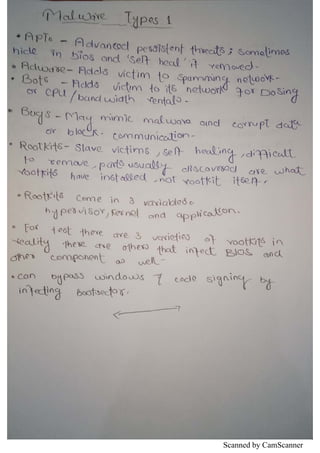 Malware Types 1
• APTs - Advanced persistent threats; sometimes
hide in bios and 'self heal' if removed.
• Adware - Adds victim to spamming network.
• Bots - Adds victim to its network for DoSing
or CPU/bandwidth rentals.
• Bugs - May mimic malware and corrupt data
or block communication.
• Rootkits - Slave victims, self healing, difficult
to remove, parts usually discovered are what
rootkits have installed, not rootkit itself.
• Rootkits come in 3 variables.
hypervisor, kernel and application.
• For test there are 3 varieties of rootkits in
reality there are others that infect BIOS and
other component as well.
• can bypass windows 7 code signing by
infecting bootsector.
Scanned by CamScanner